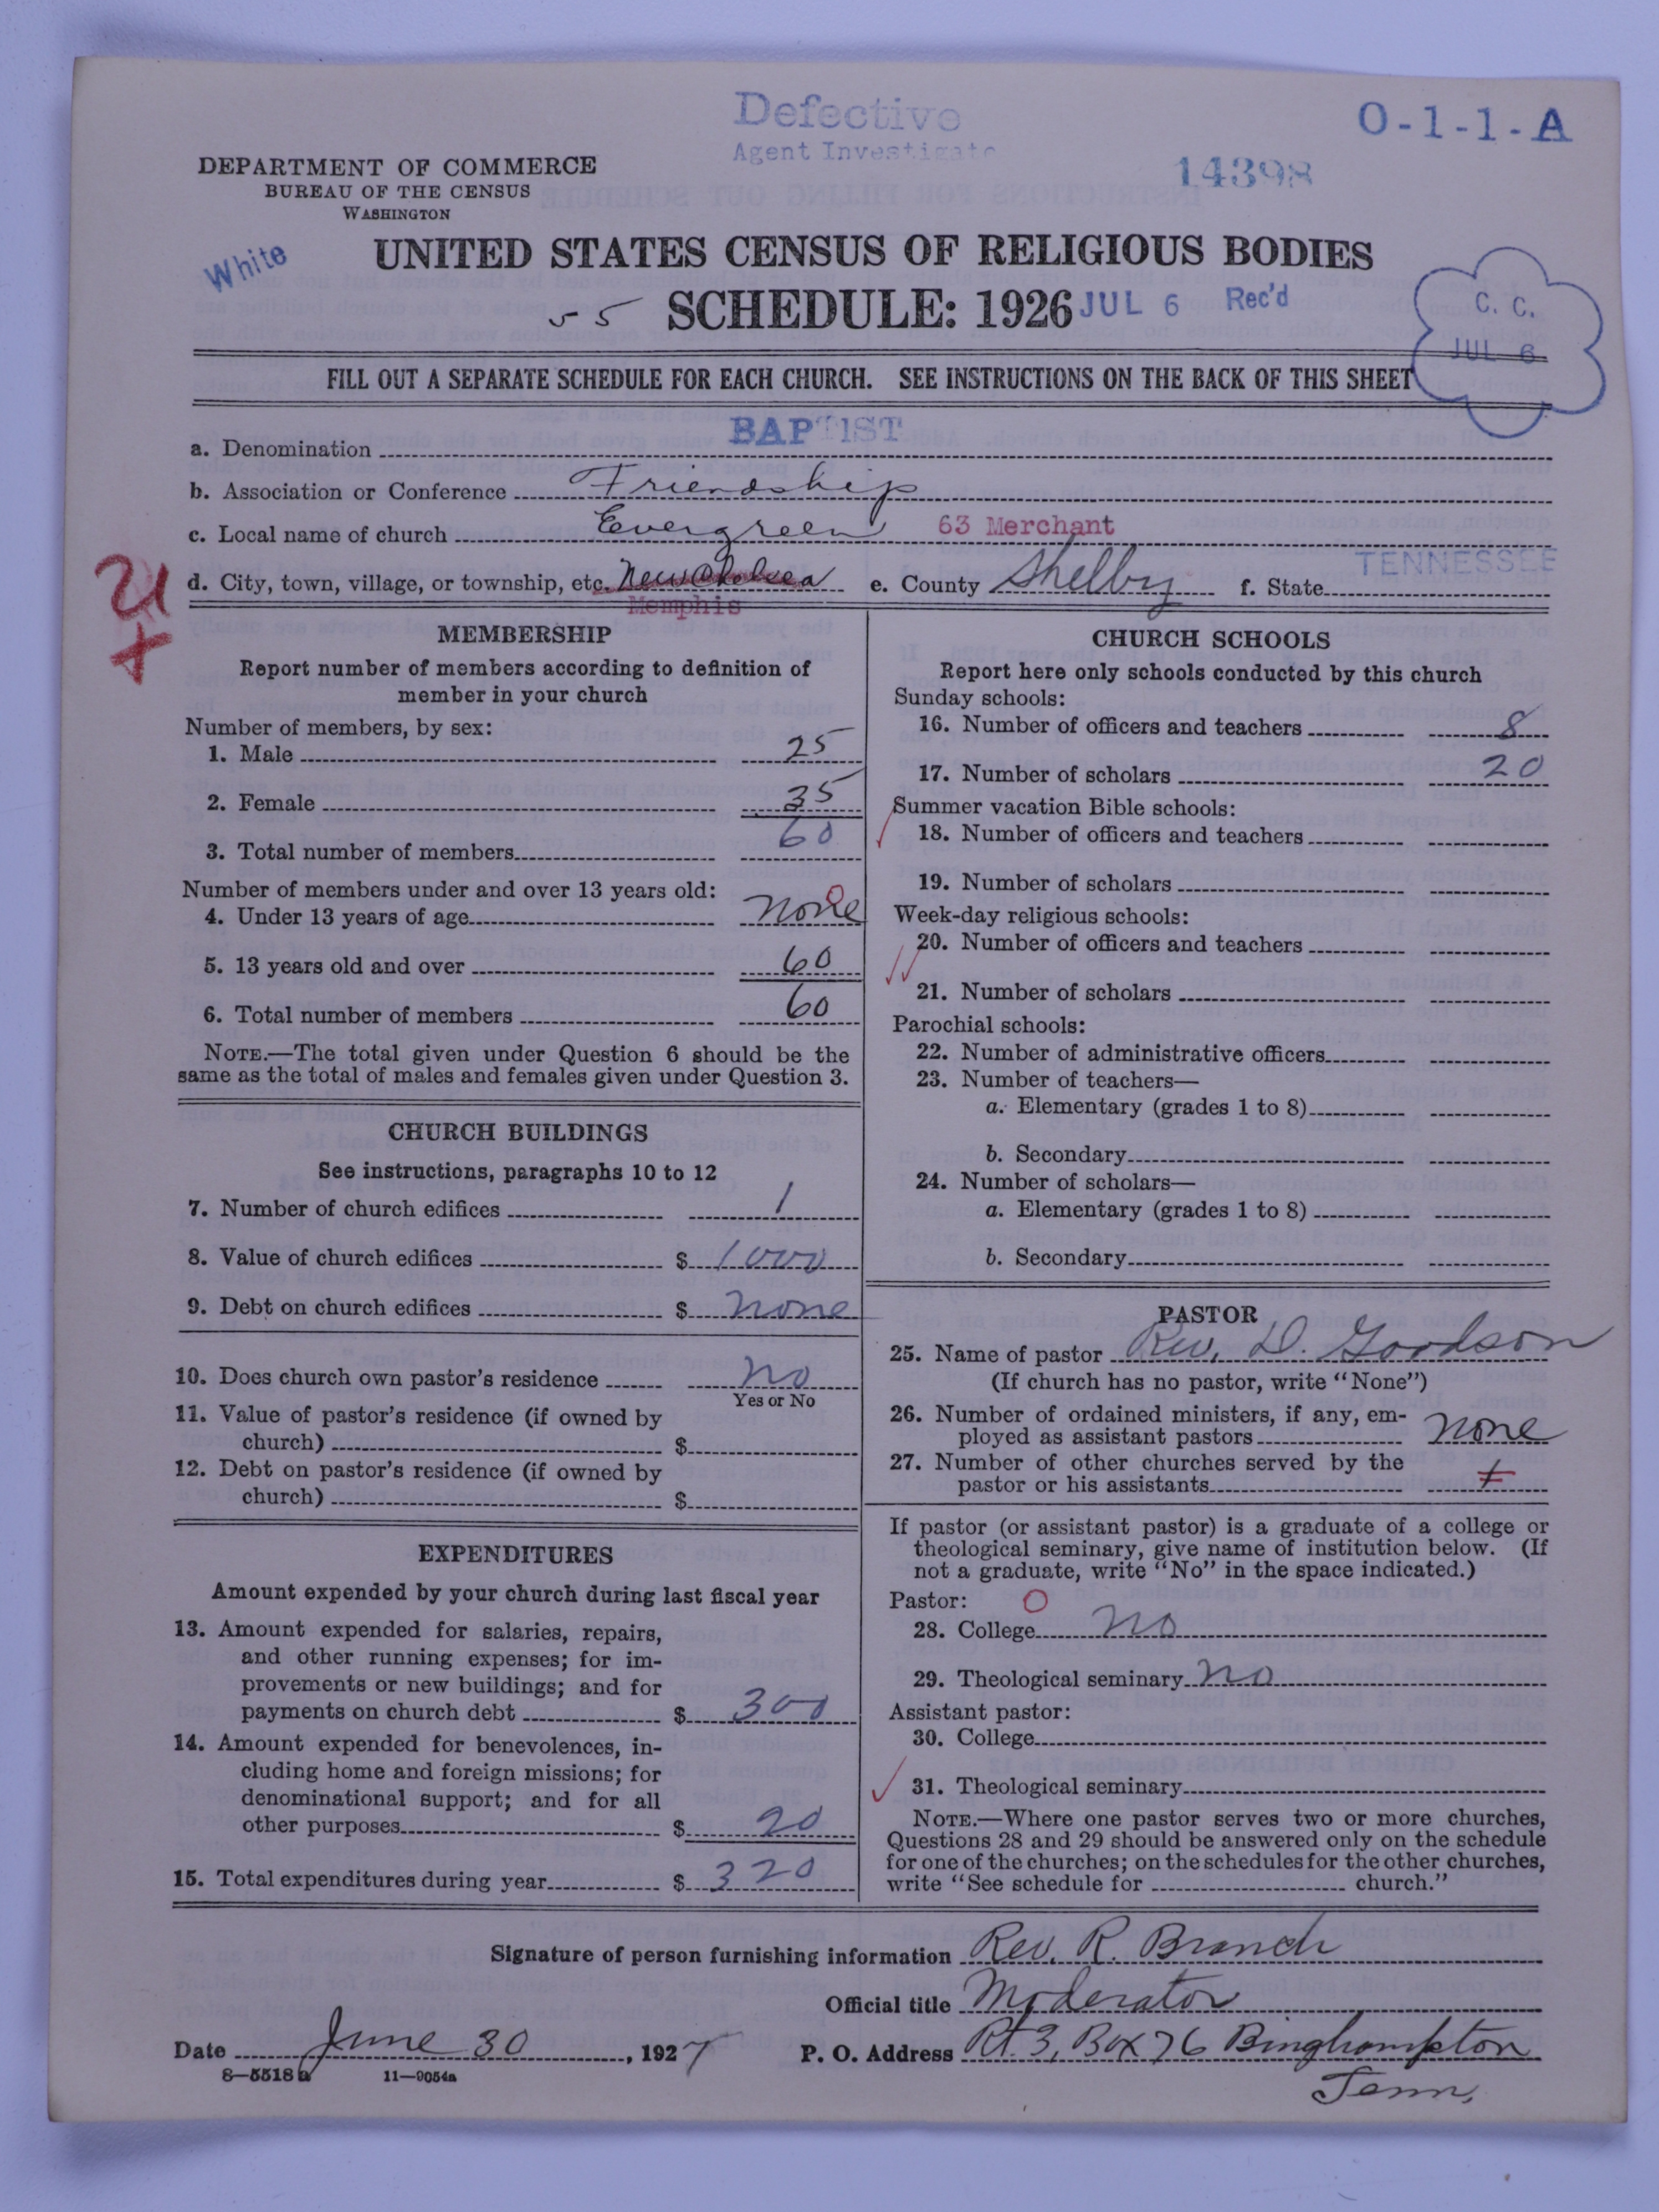 Defective
Agent Investigate
O-1-1-A
14398
DEPARTMENT OF COMMERCE
BUREAU OF THE CENSUS
WASHINGTON
White
UNITED STATES CENSUS OF RELIGIOUS BODIES
55 SCHEDULE: 1926 JUL 6 Rec'd
C. C.
JUL 6
FILL OUT A SEPARATE SCHEDULE FOR EACH CHURCH. SEE INSTRUCTIONS ON THE BACK OF THIS SHEET
a. Denomination BAPTIST
b. Association or Conference Friendship
c. Local name of church Evergreen 63 Merchant
d. City, town, village, or township, etc. New Chelsea e. County Shelby f. State TENNESSEE
Memphis
MEMBERSHIP
Report number of members according to definition of
member in your church
Number of members, by sex:
1. Male 25
2. Female 35
3. Total number of members 60
Number of members under and over 13 years old:
4. Under 13 years of age none 0
5. 13 years old and over 60
6. Total number of members 60
NOTE.—The total given under Question 6 should be the
same as the total of males and females given under Question 3.
CHURCH BUILDINGS
See instructions, paragraphs 10 to 12
7. Number of church edifices 1
8. Value of church edifices $ 1000
9. Debt on church edifices $ none
10. Does church own pastor's residence no
Yes or No
11. Value of pastor's residence (if owned by
church) $
12. Debt on pastor's residence (if owned by
church) $
EXPENDITURES
Amount expended by your church during last fiscal year
13. Amount expended for salaries, repairs,
and other running expenses; for im-
provements or new buildings; and for
payments on church debt $ 300
14. Amount expended for benevolences, in-
cluding home and foreign missions; for
denominational support; and for all
other purposes $ 20
15. Total expenditures during year $ 320
CHURCH SCHOOLS
Report here only schools conducted by this church
Sunday schools:
16. Number of officers and teachers 8
17. Number of scholars 20
Summer vacation Bible schools:
18. Number of officers and teachers
19. Number of scholars
Week-day religious schools:
20. Number of officers and teachers
21. Number of scholars
Parochial schools:
22. Number of administrative officers
23. Number of teachers—
a. Elementary (grades 1 to 8)
b. Secondary
24. Number of scholars—
a. Elementary (grades 1 to 8)
b. Secondary
PASTOR
25. Name of pastor Rev. D. Goodson
(If church has no pastor, write "None")
26. Number of ordained ministers, if any, em-
ployed as assistant pastors none
27. Number of other churches served by the
pastor or his assistants 1
If pastor (or assistant pastor) is a graduate of a college or
theological seminary, give name of institution below. (If
not a graduate, write "No" in the space indicated.)
Pastor: 0
28. College no
29. Theological seminary no
Assistant pastor:
30. College
31. Theological seminary
NOTE.—Where one pastor serves two or more churches,
Questions 28 and 29 should be answered only on the schedule
for one of the churches; on the schedules for the other churches,
write "See schedule for church."
Signature of person furnishing information Rev. R. Branch
Official title Moderator
Date June 30, 1927 P. O. Address Rt. 3, Box 76 Binghampton
Tenn.
8—5518a 11—9054a